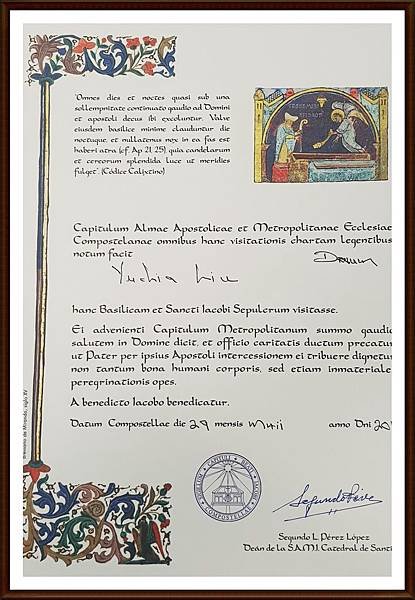 "Omnes dies et noctes quasi sub una
sollempnitate continuato gaudio ad Domini
et apostoli decus ibi excoluntur. Valve
eiusdem basilice minime clauduntur die
noctuque, et nullatenus nox in ea fas est
haberi atra (cf. Ap 21, 25), quia candelarum
et cereorum splendida luce ut meridies
fulget". (Códice Calixtino)
Capitulum Almae Apostolicae et Metropolitanae Ecclesiae
Compostelanae omnibus hanc visitationis chartam legentibus
notum facit
hanc Basilicam et Sancti Iacobi Sepulcrum visitasse.
Ei advenienti Capitulum Metropolitanum summo gaudio
salutem in Domine dicit, et officio caritatis ductum precatu
ut Pater per ipsius Apostoli intercessionem ei tribuere dignetu
non tantum bona humani corporis, sed etiam inmateriale
peregrinationis opes.
A benedicto Iacobo benedicatur.
Datum Compostellae die 29 mensis Maii anno Dni 20
Segundo L. Pérez López
Deán de la S.A.M.I. Catedral de Santi